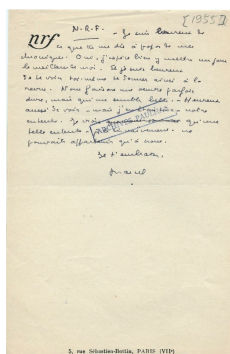 [1955]
nrf
N.R.F. - Je suis heureux de
ce que tu me dis à propos de mes
chroniques. Oui, j'espère bien y mettre un jour
le meilleur de moi. Et je suis heureux
de te voir toi-même te donner ainsi à la
revue. Nous faisons une œuvre parfois
dure, mais qui me semble belle. Heureux
aussi de voir
entente. Je crois qu'une
telle entente
pourrait appartenir qu'à nous.
Je t'embrasse,
Marcel
ARCHIVES PAULHAN
5, rue Sébastien-Bottin, PARIS (VIIe)